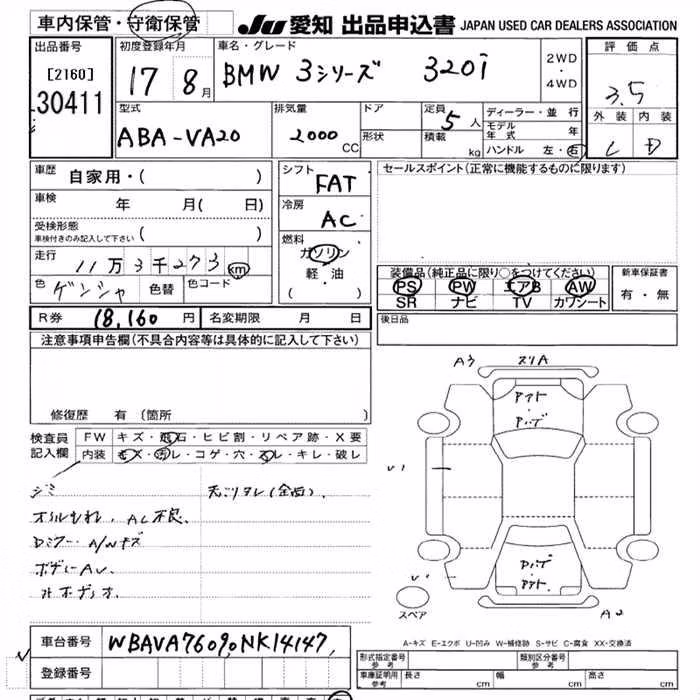 車内保管・守衛保管
JU 愛知 出品申込書 JAPAN USED CAR DEALERS ASSOCIATION
出品番号
[2160]
30411
初度登録年月
17 8月
車名・グレード
BMW 3シリーズ 320i
2WD
・
4WD
評価点
3.5
外装 内装
D
型式
ABA-VA20
排気量
2000 CC
ドア
形状
定員 5人
積載 kg
ディーラー・並行
モデル年式 年
ハンドル 左・右
車歴 自家用・( )
車検 年 月( 日)
受検形態
車検付きのみ記入して下さい ( )
走行 11万3千273 km
色 ゲンシャ 色替 色コード
シフト FAT
冷房 AC
燃料
ガソリン
軽・油
( ・ )
セールスポイント(正常に機能するものに限ります)
装備品(純正品に限り○をつけてください)
PS PW エアB AW
SR ナビ TV カワシート
新車保証書
有・無
R券 18,160 円 名変期限 月 日
後日品
注意事項申告欄(不具合内容等は具体的に記入して下さい)
修復歴 有 (箇所 )
検査員記入欄
FW キズ・飛石・ヒビ割・リペア跡・X要
内装 キズ・汚レ・コゲ・穴・スレ・キレ・破レ
天井タレ(全面).
オイルもれ, AC不良.
Dミラー A/Wキズ
A3 スリA
U1
U1
スペア
A2
A-キズ E-エクボ U-凹み W-補修跡 S-サビ C-腐食 XX-交換済
車台番号 WBAVA76090NK14147
登録番号
形式指定番号 参考
類別区分番号 参考
車庫証明用 参考 長さ cm 幅 cm 高さ cm